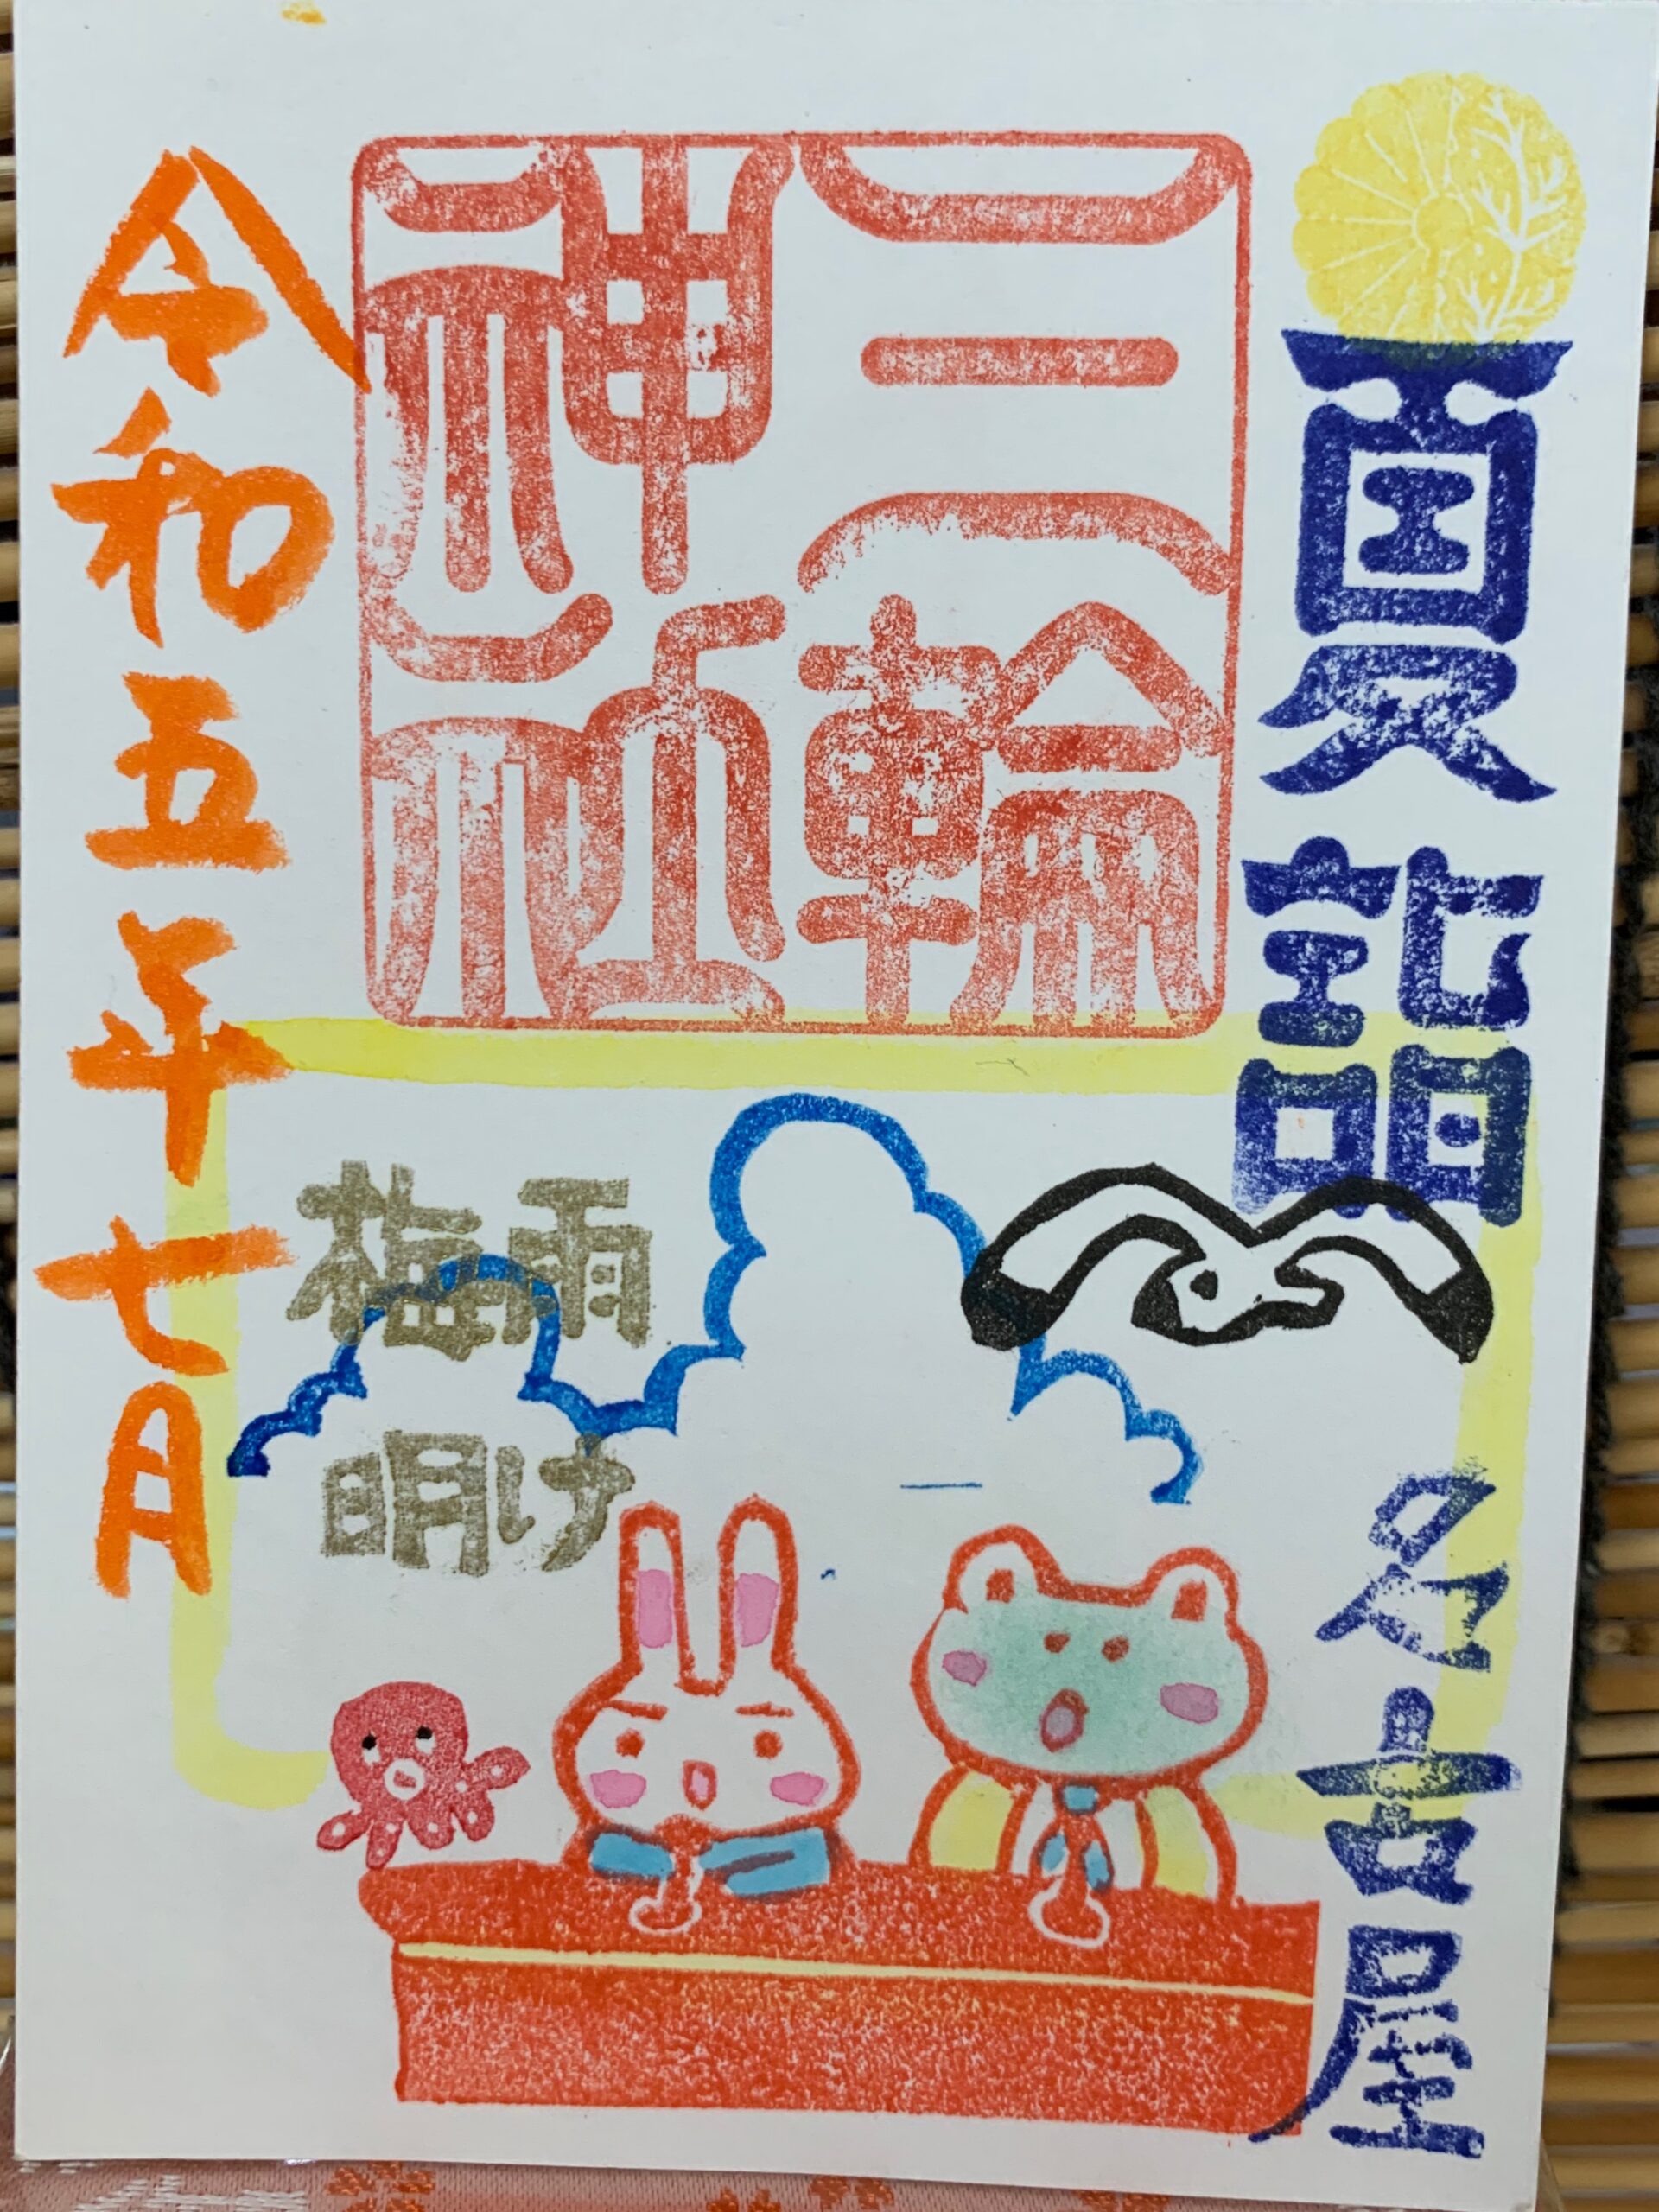 夏詣
名古屋
三輪
神社
梅雨
明け
令和五年七月